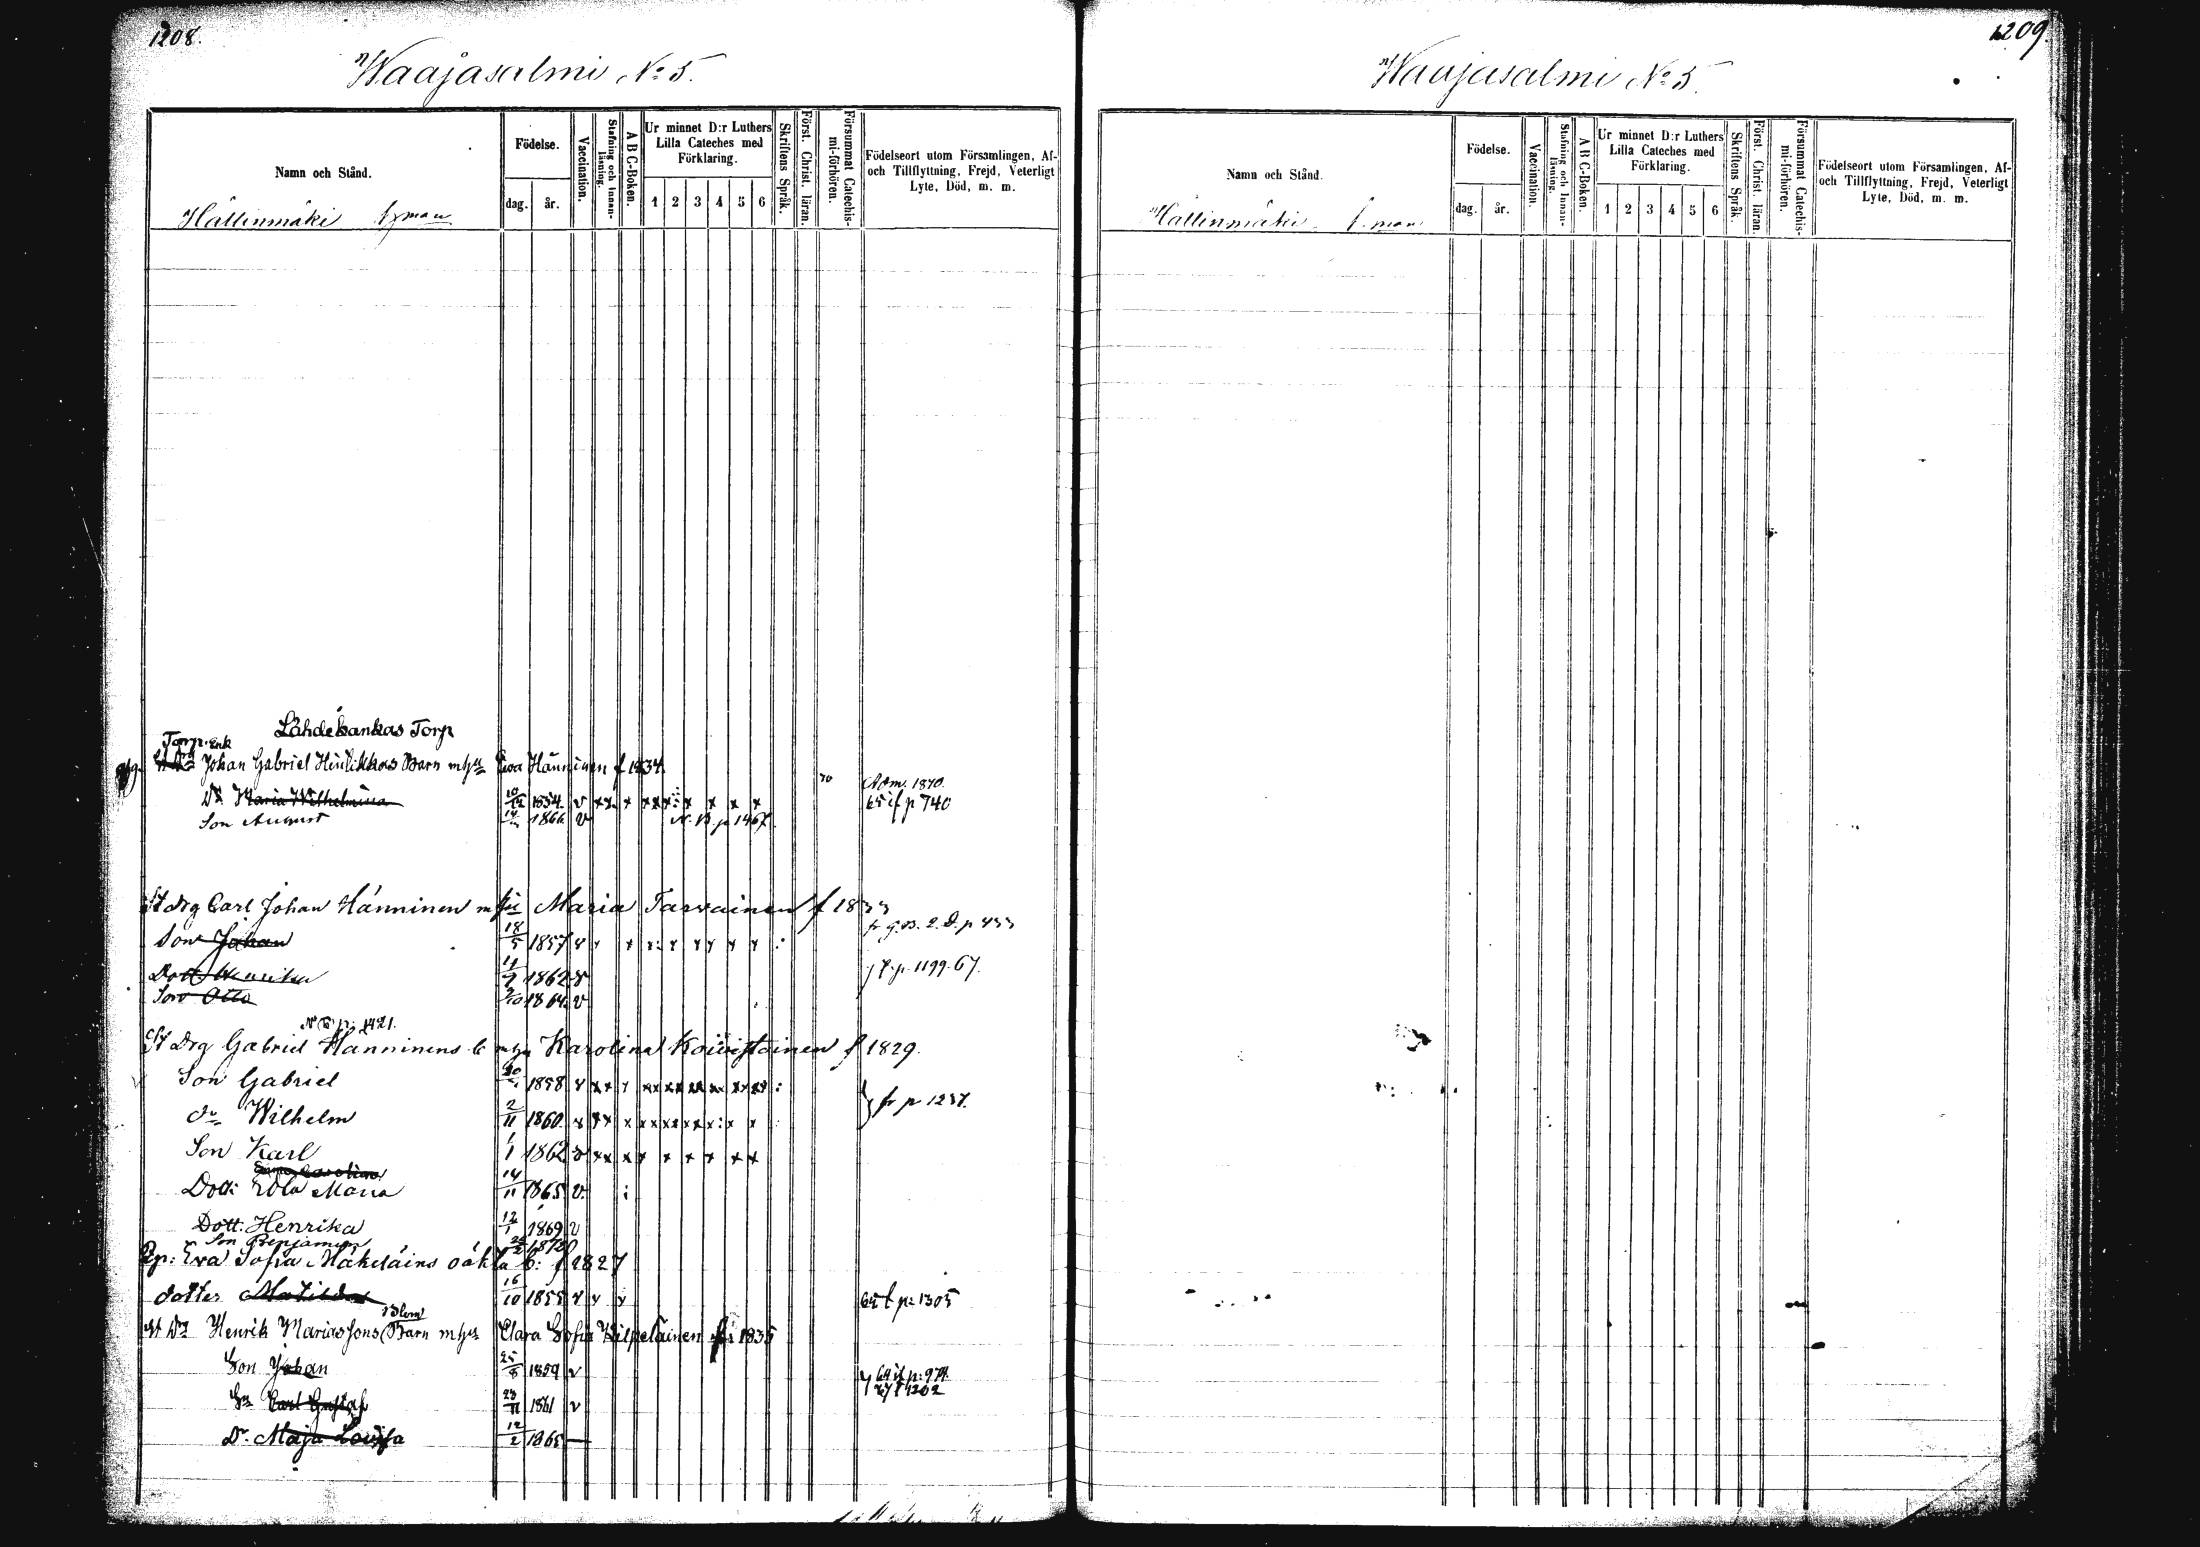 1208.
Waajasalmi No 5.
Namn och Stånd.
Födelse.
dag.
år.
Vaccination.
Stafning och Innanläsning.
A B C-Boken.
Ur minnet D:r Luthers
Lilla Cateches med
Förklaring.
1 2 3 4 5 6
Skriftens Språk.
Först. Christ. läran.
Försummat Catechismi-förhören.
Födelseort utom Församlingen, Af-
och Tillflyttning, Frejd, Veterligt
Lyte, Död, m. m.
Hällinmäki
Lähdekankas Torp
Torp. Enk
Johan Gabriel Barn m hu Eva Hänninen f 1834.
Maria Wilhelmina 10/12 1854 v x x x x x x x x x x 70 Adm. 1870. 65 if p 740
Son August 1866 v N. B. p 1467
St drg Carl Johan Hänninen m hu Maria Tarvainen f 1833
Son Johan 18/5 1857 v
Dott. Henrika 1862 v
Son Otto 1864 v
f. p. 1199. 67.
N B p: 1421.
St Drg Gabriel Hänninens b m hu Karolina Koivistoinen f 1829.
Son Gabriel 1858 v x x
} fr p 1237.
do Wilhelm 2/11 1860 v x x x x x x x x x : x x
Son Karl 1/1 1862 v x x x x x x x x x
Dott: Edla Maria 14/11 1865 v :
Dott: Henrika 12/1 1869 v
Son Benjamin 1872
Eva Sofia Mäkeläins oäkta b: f 1827
dotter Matilda 16/10 1855 v v v 65 t p: 1305
St Drg Henrik Mariassons Barn m hu Clara Sofia Kilpeläinen f: 1835
Son Johan 25/8 1859 v
Carl Gustaf 23/11 1861 v
D. Maja Lovisa 12/2 1865 —
1209.
Waajasalmi No 5.
Namn och Stånd.
Födelse.
dag.
år.
Vaccination.
Stafning och Innanläsning.
A B C-Boken.
Ur minnet D:r Luthers
Lilla Cateches med
Förklaring.
1 2 3 4 5 6
Skriftens Språk.
Först. Christ. läran.
Försummat Catechismi-förhören.
Födelseort utom Församlingen, Af-
och Tillflyttning, Frejd, Veterligt
Lyte, Död, m. m.
Hällinmäki